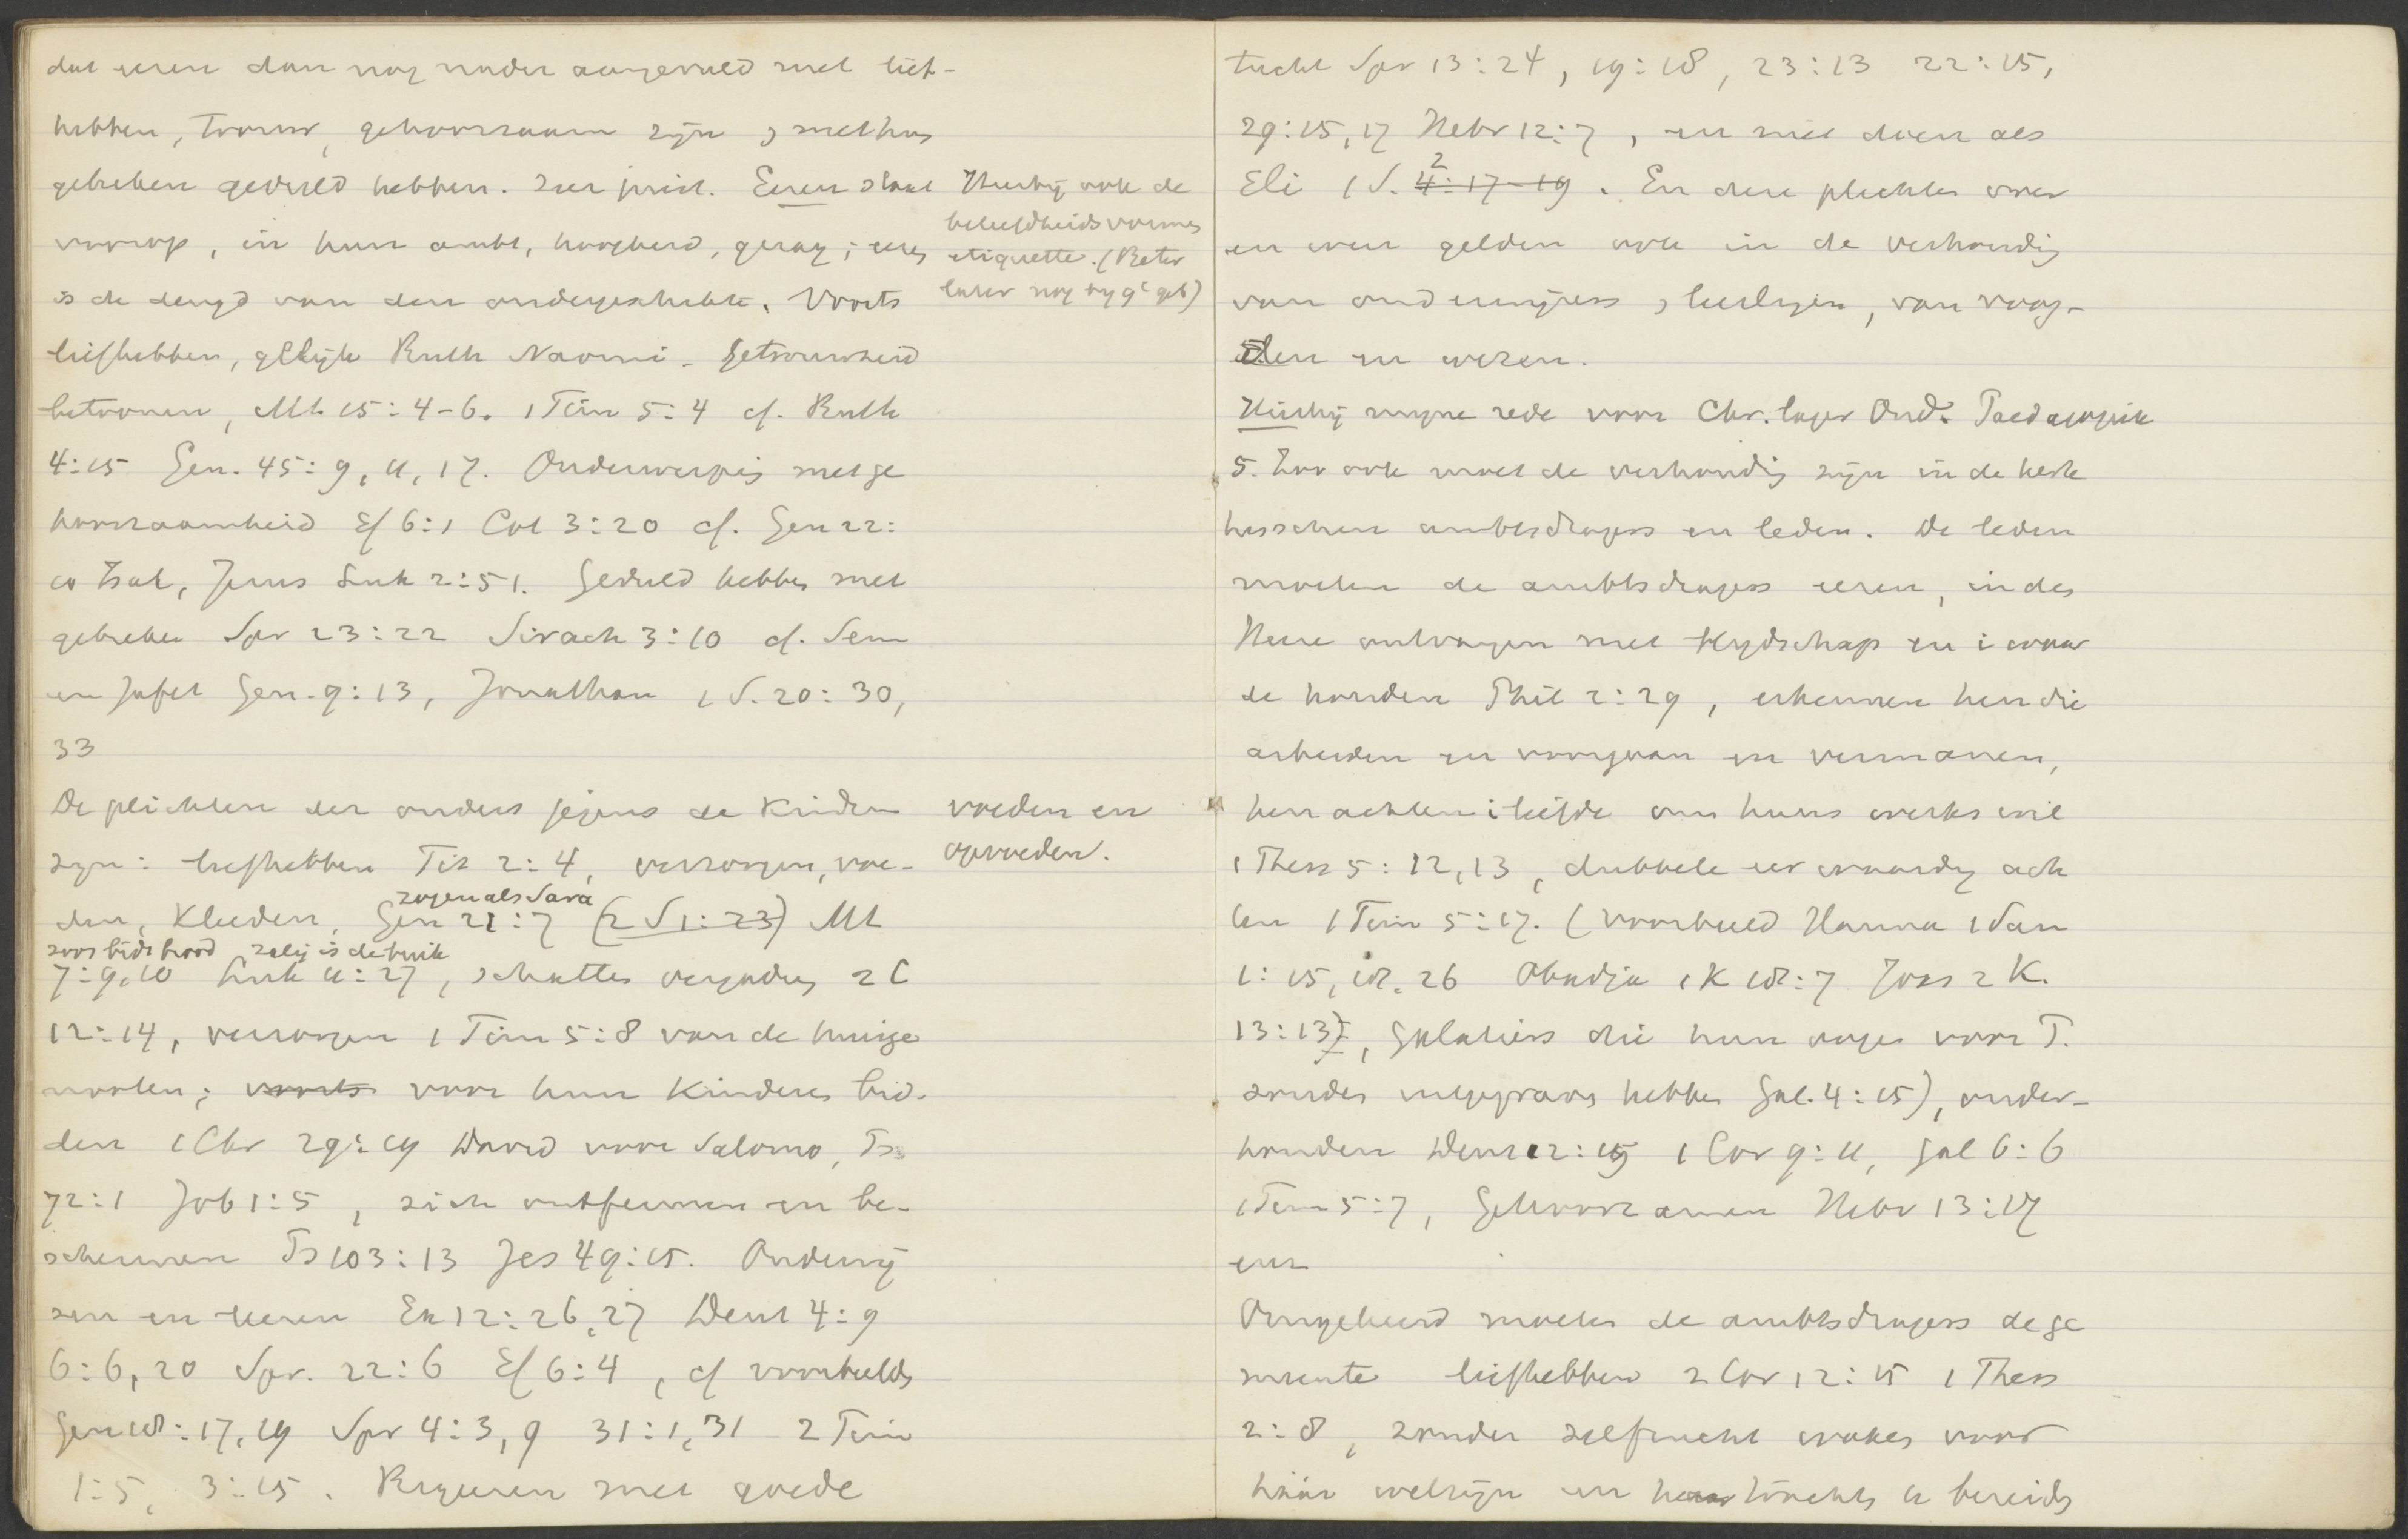 dat eeren dan nog nader aangevuld met lief-
hebben, trouw, gehoorzaam zijn, met hun
gebreken geduld hebben. Zeer juist. Eeren staat
voorop, in hun ambt, hoogheid, gezag; eeren
is de deugd van den ondergeschikte. Voorts
liefhebben, gelijk Ruth Naomi. Getrouwheid
betoonen, Mt. 15:4-6. 1 Tim 5:4 cf. Ruth
4:15 Gen. 45:9, 11, 17. Onderwerping met ge
hoorzaamheid Ef 6:1 Col 3:20 cf. Gen 22:
10 Izak, Jezus Luk 2:51. Geduld hebben met
gebreken Spr 23:22 Sirach 3:10 cf. Sem
en Jafet Gen. 9:13, Jonathan 1 S. 20:30,
33
Hierbij ook de
beleefdheidsvormen
etiquette. (Beter
later nog bij 9e geb)
De plichten der ouders jegens de kinderen
zijn: liefhebben Tit 2:4, verzorgen, voe-
den, kleeden, Gen 21:7 (2 S 1:23) Mt
zogen als Sara
7:9,10 Luk 11:27, schatten vergaderen 2 C
zoon bidt brood zalig is de buik
12:14, verzorgen 1 Tim 5:8 van de huisge
nooten; voorts voor hun kinderen bid-
den 1 Chr 29:19 David voor Salomo, Ps
72:1 Job 1:5, zich ontfermen en be-
schermen Ps 103:13 Jes 49:15. Onderwij
zen en leeren Ex 12:26,27 Deut 4:9
6:6,20 Spr. 22:6 Ef 6:4, cf voorbeelden
Gen 18:17,19 Spr 4:3,9 31:1,31 2 Tim
1:5, 3:15. Regeeren met goede
voeden en
opvoeden.
tucht Spr 13:24, 19:18, 23:13 22:15,
29:15,17 Hebr 12:7, en niet doen als
Eli 1 S. 2 4:17-19. En deze plichten over
en weer gelden ook in de verhouding
van onderwijzers, leerlingen, van voog-
den en weezen.
Hierbij mijne rede voor Chr. lager Ond. Paedagogiek
5. Zoo ook moet de verhouding zijn in de kerk
tusschen ambtsdragers en leden. De leden
moeten de ambtsdragers eeren, in den
Heere ontvangen met blijdschap en i waar
de houden Phil 2:29, erkennen hen die
arbeiden en voorgaan en vermanen,
hen achten i liefde om huns werks wil
1 Thess 5:12,13, dubbele eer waardig ach
ten 1 Tim 5:17. (voorbeeld Hanna 1 Sam
1:15, 18. 26 Obadja 1 K 18:7 Joas 2 K.
13:13), Galatiers die hun oogen voor P.
zouden uitgegraven hebben Gal. 4:15), onder-
houden Deut 12:19 1 Cor 9:11, Gal 6:6
1 Tim 5:7, Gehoorzamen Hebr 13:17
enz
Omgekeerd moeten de ambtsdragers de ge
meente liefhebben 2 Cor 12:15 1 Thess
2:8, zonder zelfzucht waken voor
háár welzijn en haar te bereiden